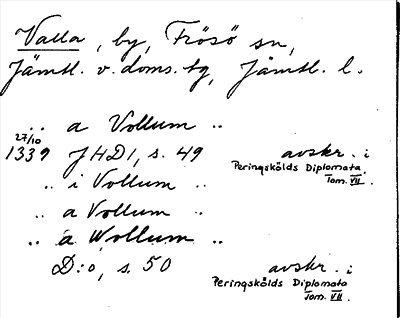 Valla, by, Frösö sn,
Jämtl. v. doms. tg, Jämtl. l.
.. a Vollum ..
27/10
1339 JHD1, s. 49 avskr. i
Peringskölds Diplomata.
Tom. VII.
.. i Vollum ..
.. a Vollum ..
.. a Wollum ..
D:o, s. 50 avskr. i
Peringskölds Diplomata
Tom. VII.